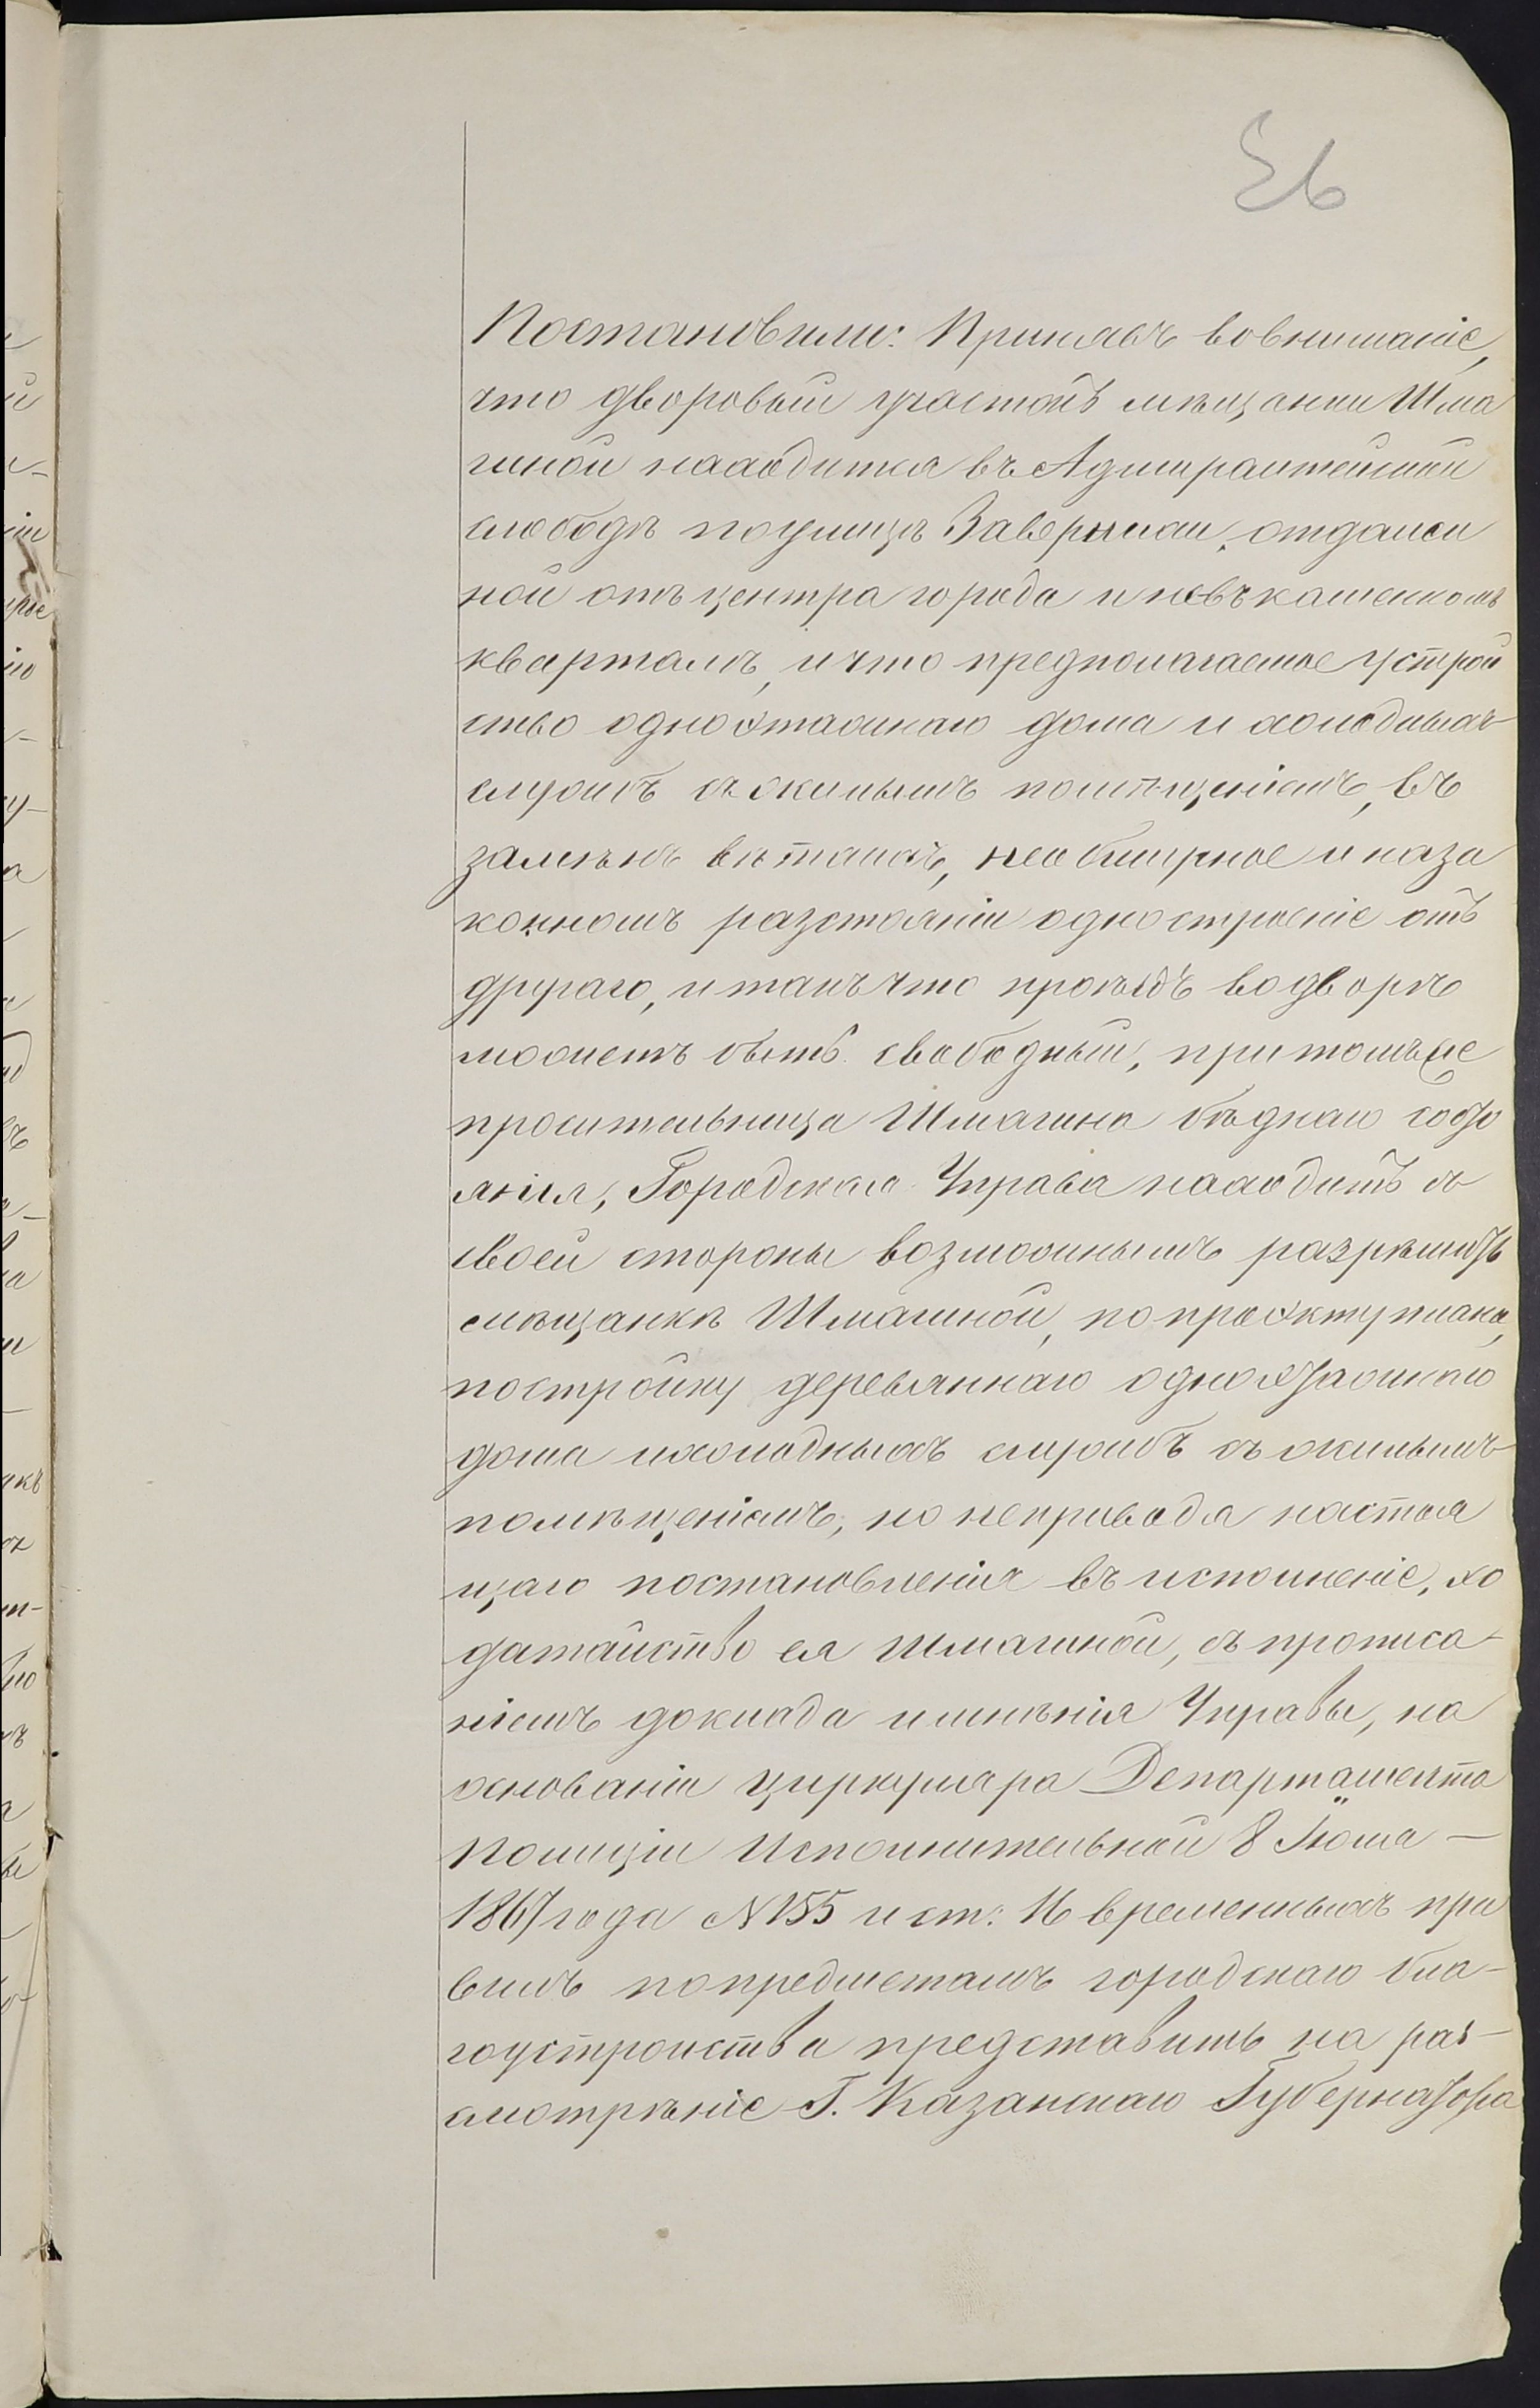 36
Постановили: Принявъ во вниманіе,
что дворовый участокъ мѣщанки Шма
гиной находится въ Адмиралтейской
слободѣ по улицѣ Заверяжи, отдален
ной отъ центра города и не въ каменномъ
кварталѣ, и что предполагаемое устрой
ство одноэтажнаго дома и холодныхъ
службъ съ жилымъ помѣщеніемъ, въ
замѣнъ ветхихъ, необширное и на за
конномъ разстояніи одно строеніе отъ
другаго, и такъ что проѣздъ во дворѣ
можетъ быть свободный, при томъ же
просительница Шмагина бѣднаго состо
янія, Городская Управа находитъ съ
своей стороны возможнымъ разрѣшить
мѣщанкѣ Шмагиной, по проэкту плана,
постройку деревяннаго одноэтажнаго
дома и холодныхъ службъ съ жилымъ
помѣщеніемъ, но не приводя настоя
щаго постановленія въ исполненіе, хо
датайство ея Шмагиной, съ прописа-
ніемъ доклада и мнѣнія Управы, на
основаніи циркуляра Департамента
Полиціи Исполнительной 8 Іюля —
1867 года № 155 и ст: 16 временныхъ пра
вилъ по предметамъ городскаго бла-
гоустройства представить на раз-
смотрѣніе Г. Казанскаго Губернатора